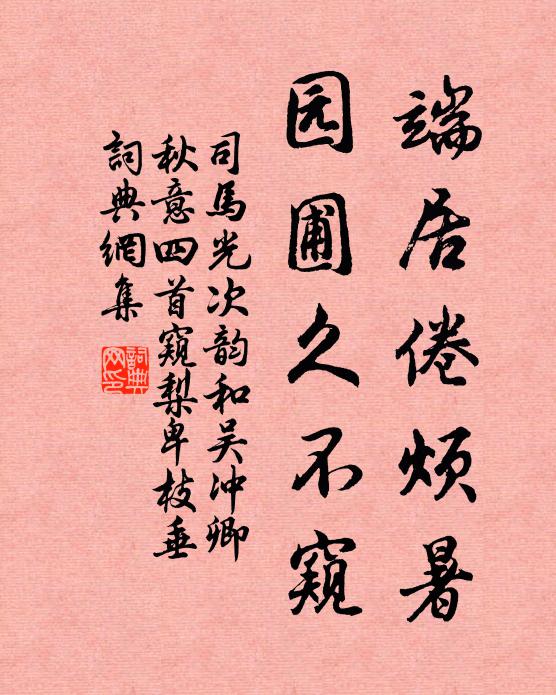 端居倦烦暑
园圃久不窥
司馬光次韵和吴冲卿
秋意四首窥梨卑枝垂
詞典網集
詞典
网印